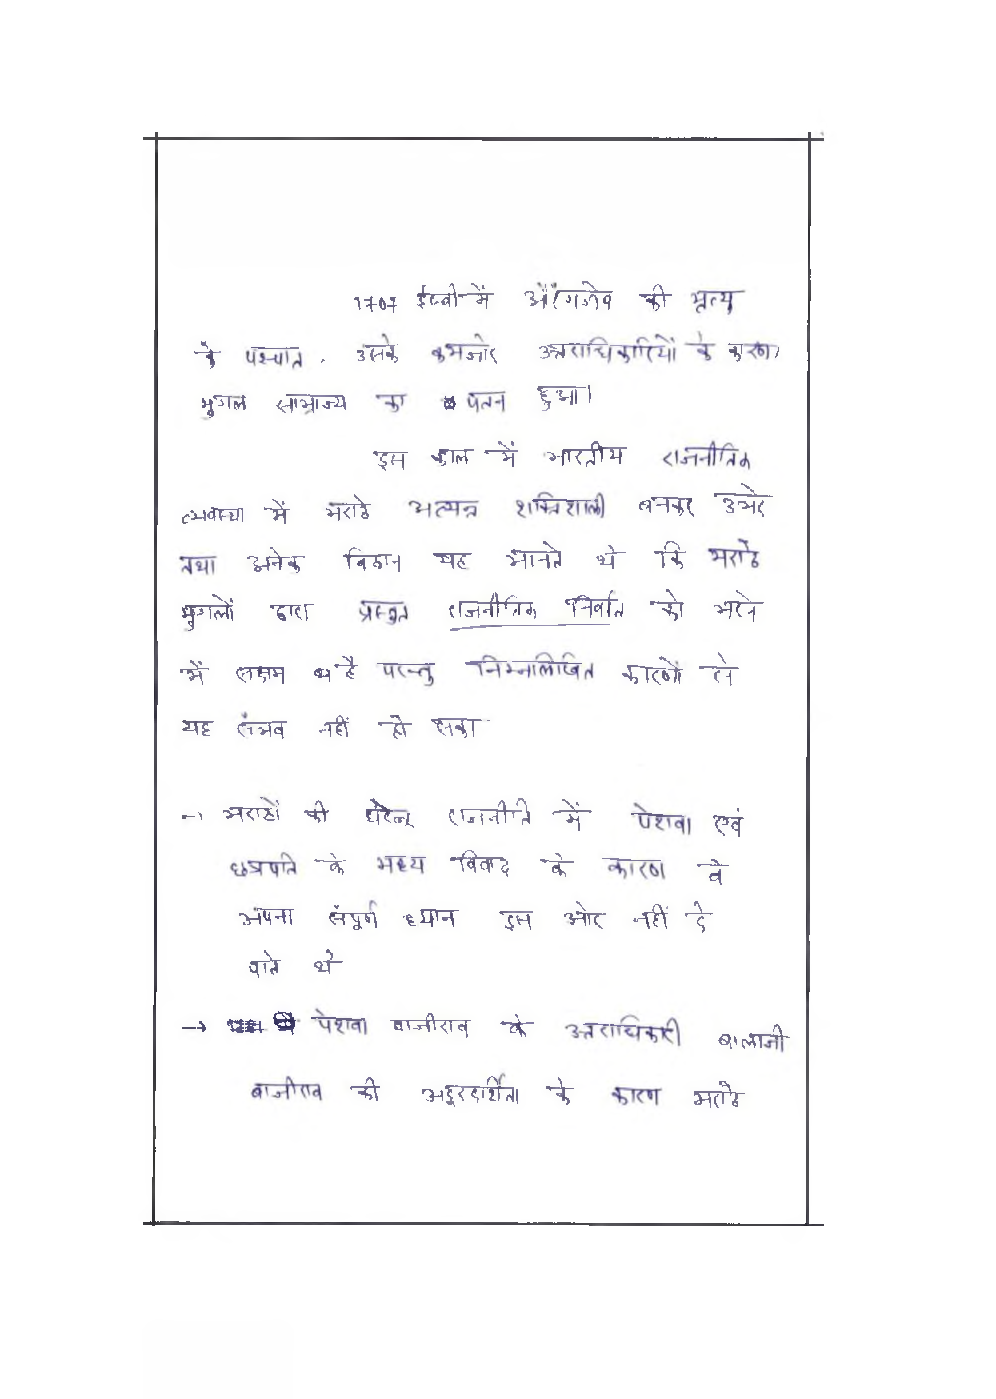 1707 ईस्वी में औरंगजेब की मृत्यु
के पश्चात, उसके कमजोर उत्तराधिकारियों के कारण,
मुगल साम्राज्य का पतन हुआ।
इस काल में भारतीय राजनीतिक
व्यवस्था में मराठे अत्यन्त शक्तिशाली बनकर उभरे
तथा अनेक विद्वान यह मानते थे कि मराठे
मुगलों द्वारा प्रस्तुत राजनीतिक निर्वात को भरने
में सक्षम है परन्तु निम्नलिखित कारणों से
यह संभव नहीं हो सका
→ मराठों की घरेलू राजनीति में पेशवा एवं
छत्रपति के मध्य विवाद के कारण वे
अपना संपूर्ण ध्यान इस ओर नहीं दे
पाते थे
→ पेशवा बाजीराव के उत्तराधिकारी बालाजी
बाजीराव की अदूरदर्शिता के कारण मराठे